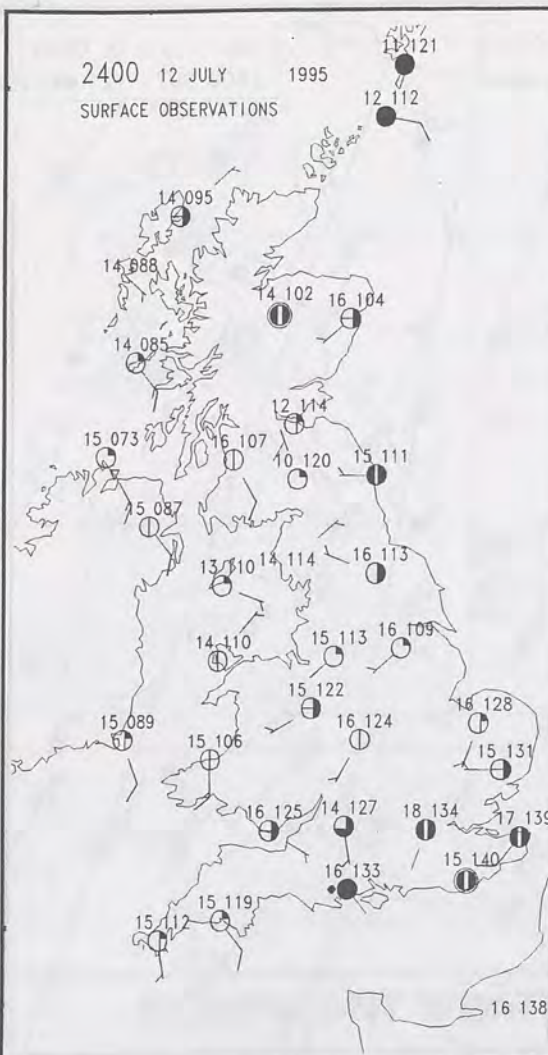 11 121
2400 12 JULY 1995
12 112
SURFACE OBSERVATIONS
14 095
14 088
14 102
16 104
14 085
12 114
15 073
16 107
10 120
15 111
15 087
13 110
14 114
16 113
14 110
15 113
16 109
15 122
16 128
15 089
15 106
16 124
15 131
16 125
14 127
18 134
17 139
16 133
15 140
15 112
15 119
16 138